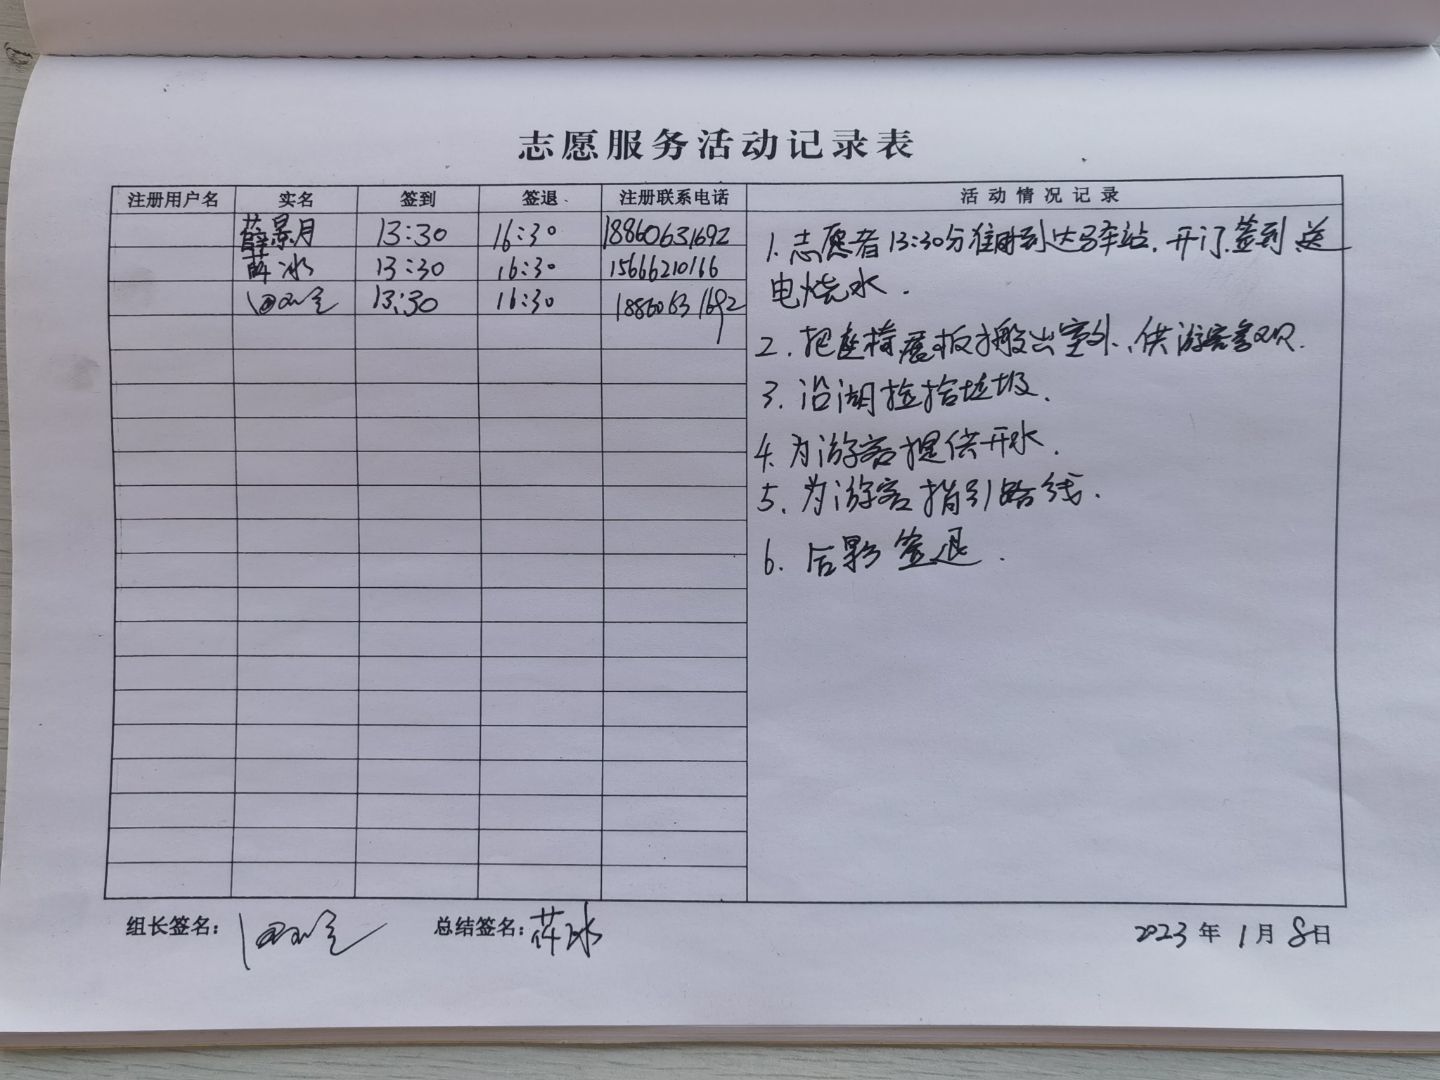 志愿服务活动记录表
注册用户名 实名 签到 签退 注册联系电话 活动情况记录
薛景月 13:30 16:30 18860631692
薛冰 13:30 16:30 15666210166
13:30 16:30 18860631692
1. 志愿者13:30分准时到达驿站.开门.签到.送
电烧水.
2. 把座椅展板搬出室外.供游客参观.
3. 沿湖捡拾垃圾.
4. 为游客提供开水.
5. 为游客指引路线.
6. 合影签退.
组长签名: 总结签名: 薛冰 2023年1月8日